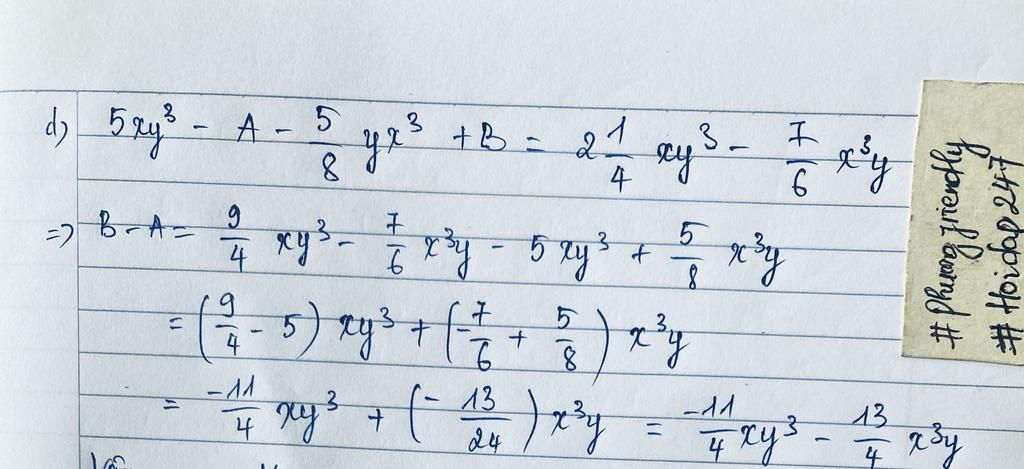 d) 5xy³ - A - 5/8 yx³ + B = 2 1/4 xy³ - 7/6 x³y
=> B - A = 9/4 xy³ - 7/6 x³y - 5xy³ + 5/8 x³y
= (9/4 - 5) xy³ + (-7/6 + 5/8) x³y
= -11/4 xy³ + (-13/24) x³y = -11/4 xy³ - 13/4 x³y
# Phuong friendly
# Hoidap247